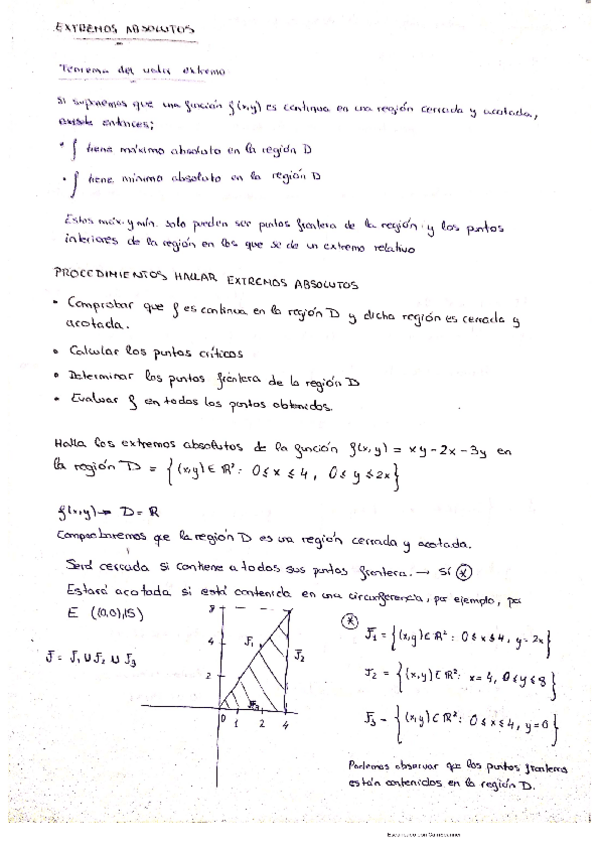 EXTREMOS ABSOLUTOS
Teorema del valor extremo
Si suponemos que una función f(x,y) es continua en una región cerrada y acotada,
entonces;
• f tiene máximo absoluto en la región D
• f tiene mínimo absoluto en la región D
Estos máx. y mín. solo pueden ser puntos frontera de la región y los puntos
interiores de la región en los que se de un extremo relativo
PROCEDIMIENTOS HALLAR EXTREMOS ABSOLUTOS
• Comprobar que f es continua en la región D y dicha región es cerrada y
acotada.
• Calcular los puntos críticos
• Determinar los puntos frontera de la región D
• Evaluar f en todos los puntos obtenidos.
Halla los extremos absolutos de la función f(x,y) = xy - 2x - 3y en
la región D = {(x,y) ∈ R²: 0 ≤ x ≤ 4, 0 ≤ y ≤ 2x}
f(x,y) → D = R
Comprobaremos que la región D es una región cerrada y acotada.
Será cerrada si contiene a todos sus puntos frontera. → Sí *
Estará acotada si está contenida en una circunferencia, por ejemplo, por
E ((0,0),15)
J = J1 ∪ J2 ∪ J3
8
4
2
J1
J2
J3
0 1 2 4
*
J1 = {(x,y) ⊂ R²: 0 ≤ x ≤ 4, y = 2x}
J2 = {(x,y) ∈ R²: x = 4, 0 ≤ y ≤ 8}
J3 = {(x,y) ⊂ R²: 0 ≤ x ≤ 4, y = 0}
Podemos observar que los puntos frontera
están contenidos en la región D.
Escaneado con CamScanner